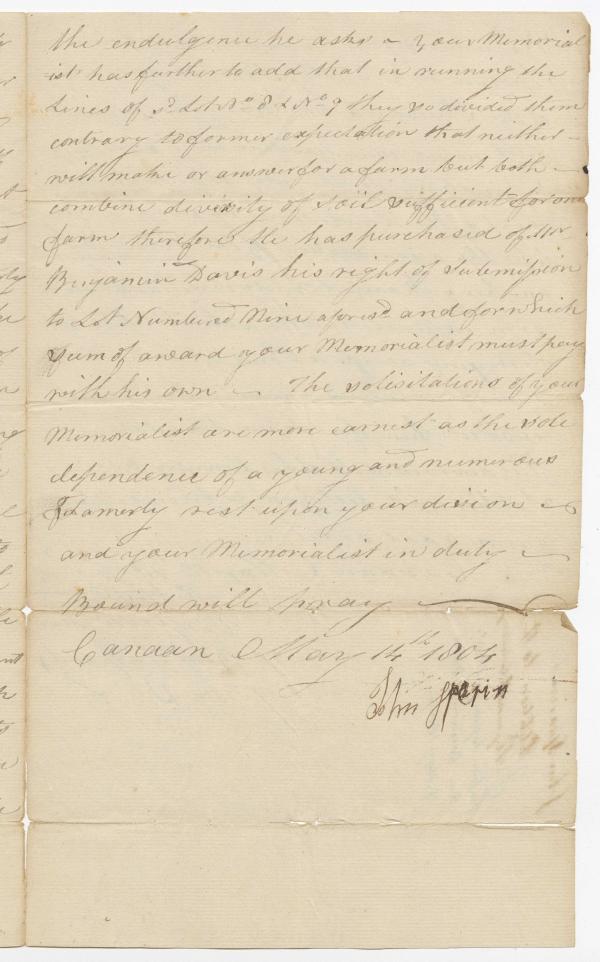 the endulgence he asks – your Memorial
ist has further to add that in running the
Lines of sd. Lot No 8 & No 9 they so divided them
contrary to former expectation that neither –
will make or answer for a farm but both –
combine diversity of soil sufficient for one
farm therefore He has purchased of Mr
Benjamin Davis his right of submission
to Lot Numbered Nine aforesd. and for which
sum of award your Memorialist must pay
with his own – The solisitations of your
Memorialist are more earnest as the sole
dependence of a young and numerous
Famerly rest upon your division –
and your Memorialist in duty –
Bound will pray
Canaan May 14th 1804
John Sperin